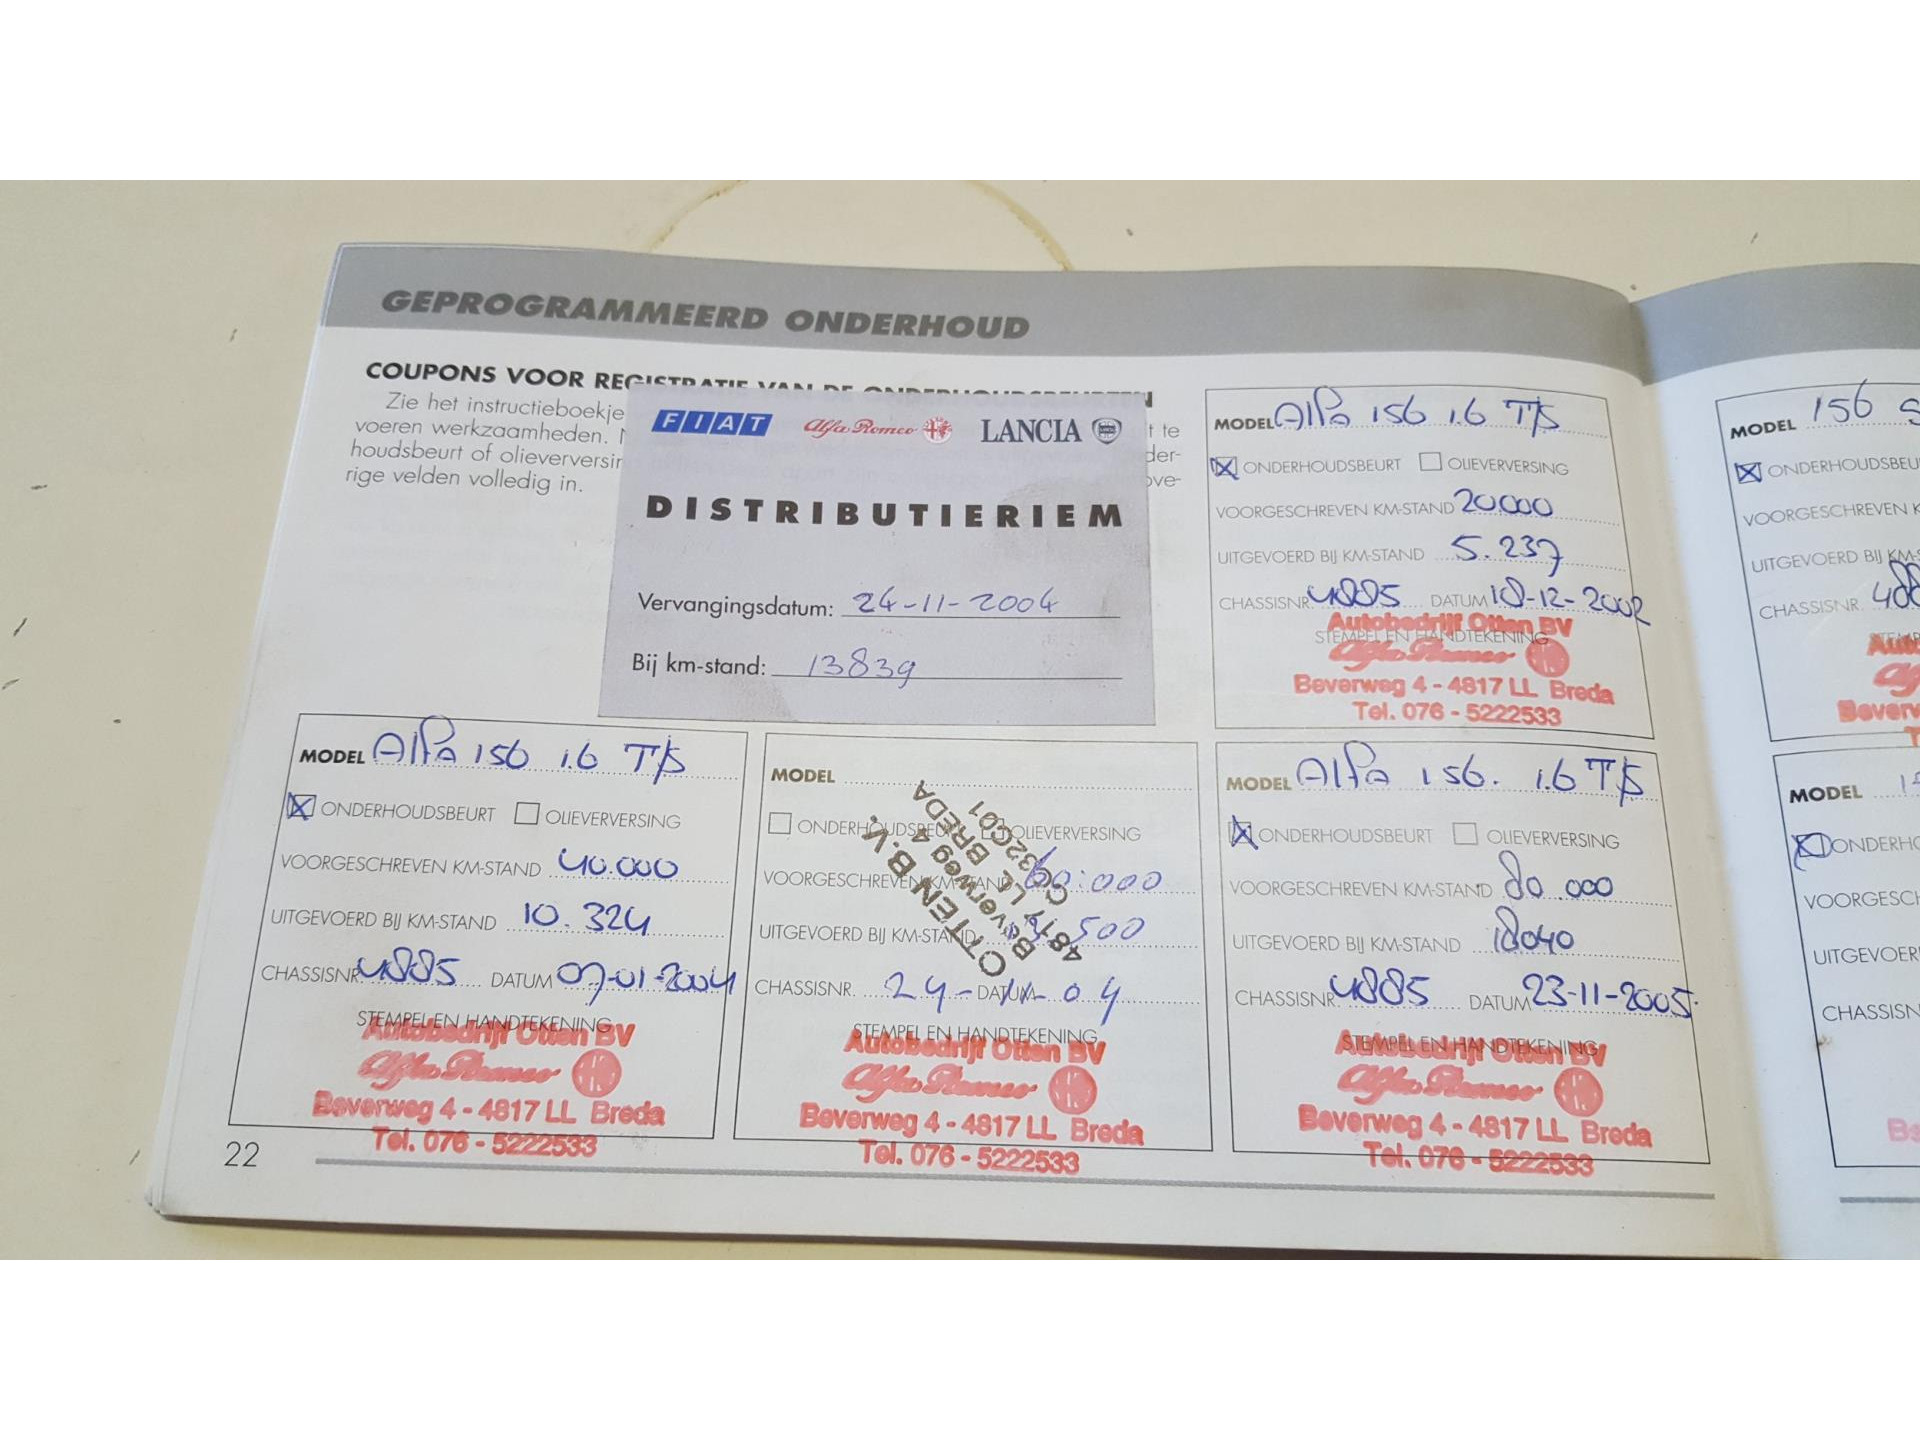 GEPROGRAMMEERD ONDERHOUD
COUPONS VOOR REGISTRATIE VAN DE ONDERHOUDSBEURTEN
Zie het instructieboekje
voeren werkzaamheden.
houdsbeurt of
rige velden volledig in.
t te
der-
ove-
FIAT Alfa Romeo LANCIA
DISTRIBUTIERIEM
Vervangingsdatum: 24-11-2004
Bij km-stand: 13839
MODEL Alfa 156 1.6 T/S
ONDERHOUDSBEURT OLIEVERVERSING
VOORGESCHREVEN KM-STAND 20.000
UITGEVOERD BIJ KM-STAND 5.237
CHASSISNR. 4885 DATUM 18-12-2002
STEMPEL EN HANDTEKENING
Autobedrijf Otten BV
Alfa Romeo
Beverweg 4 - 4817 LL Breda
Tel. 076 - 5222533
MODEL Alfa 156 1.6 T/S
ONDERHOUDSBEURT OLIEVERVERSING
VOORGESCHREVEN KM-STAND 40.000
UITGEVOERD BIJ KM-STAND 10.324
CHASSISNR. 4885 DATUM 07-01-2004
STEMPEL EN HANDTEKENING
Autobedrijf Otten BV
Alfa Romeo
Beverweg 4 - 4817 LL Breda
Tel. 076 - 5222533
MODEL
ONDERHOUDSBEURT OLIEVERVERSING
VOORGESCHREVEN KM-STAND 60.000
UITGEVOERD BIJ KM-STAND 500
CHASSISNR. DATUM 24-11-04
OTTEN B.V.
Beverweg 4
4817 LL BREDA
STEMPEL EN HANDTEKENING
Autobedrijf Otten BV
Alfa Romeo
Beverweg 4 - 4817 LL Breda
Tel. 076 - 5222533
MODEL Alfa 156. 1.6 T/S
ONDERHOUDSBEURT OLIEVERVERSING
VOORGESCHREVEN KM-STAND 80.000
UITGEVOERD BIJ KM-STAND 18040
CHASSISNR. 4885 DATUM 23-11-2005.
STEMPEL EN HANDTEKENING
Autobedrijf Otten BV
Alfa Romeo
Beverweg 4 - 4817 LL Breda
Tel. 076 - 5222533
22
MODEL 156
ONDERHOUDSBEU
VOORGESCHREVEN K
UITGEVOERD BIJ KM-S
CHASSISNR. 488
Beverw
MODEL
ONDERHO
VOORGESCH
UITGEVOER
CHASSISN